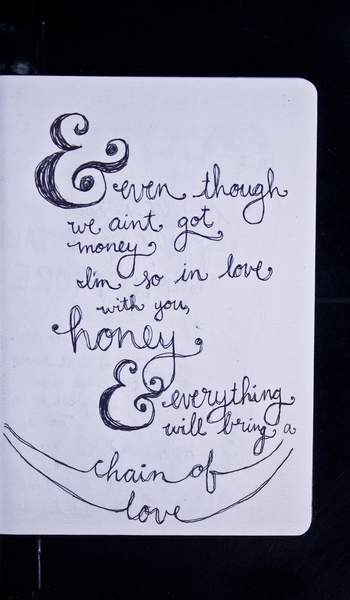 & even though
we aint got
money
I'm so in love
with you,
honey
& everything
will bring a
chain of
love